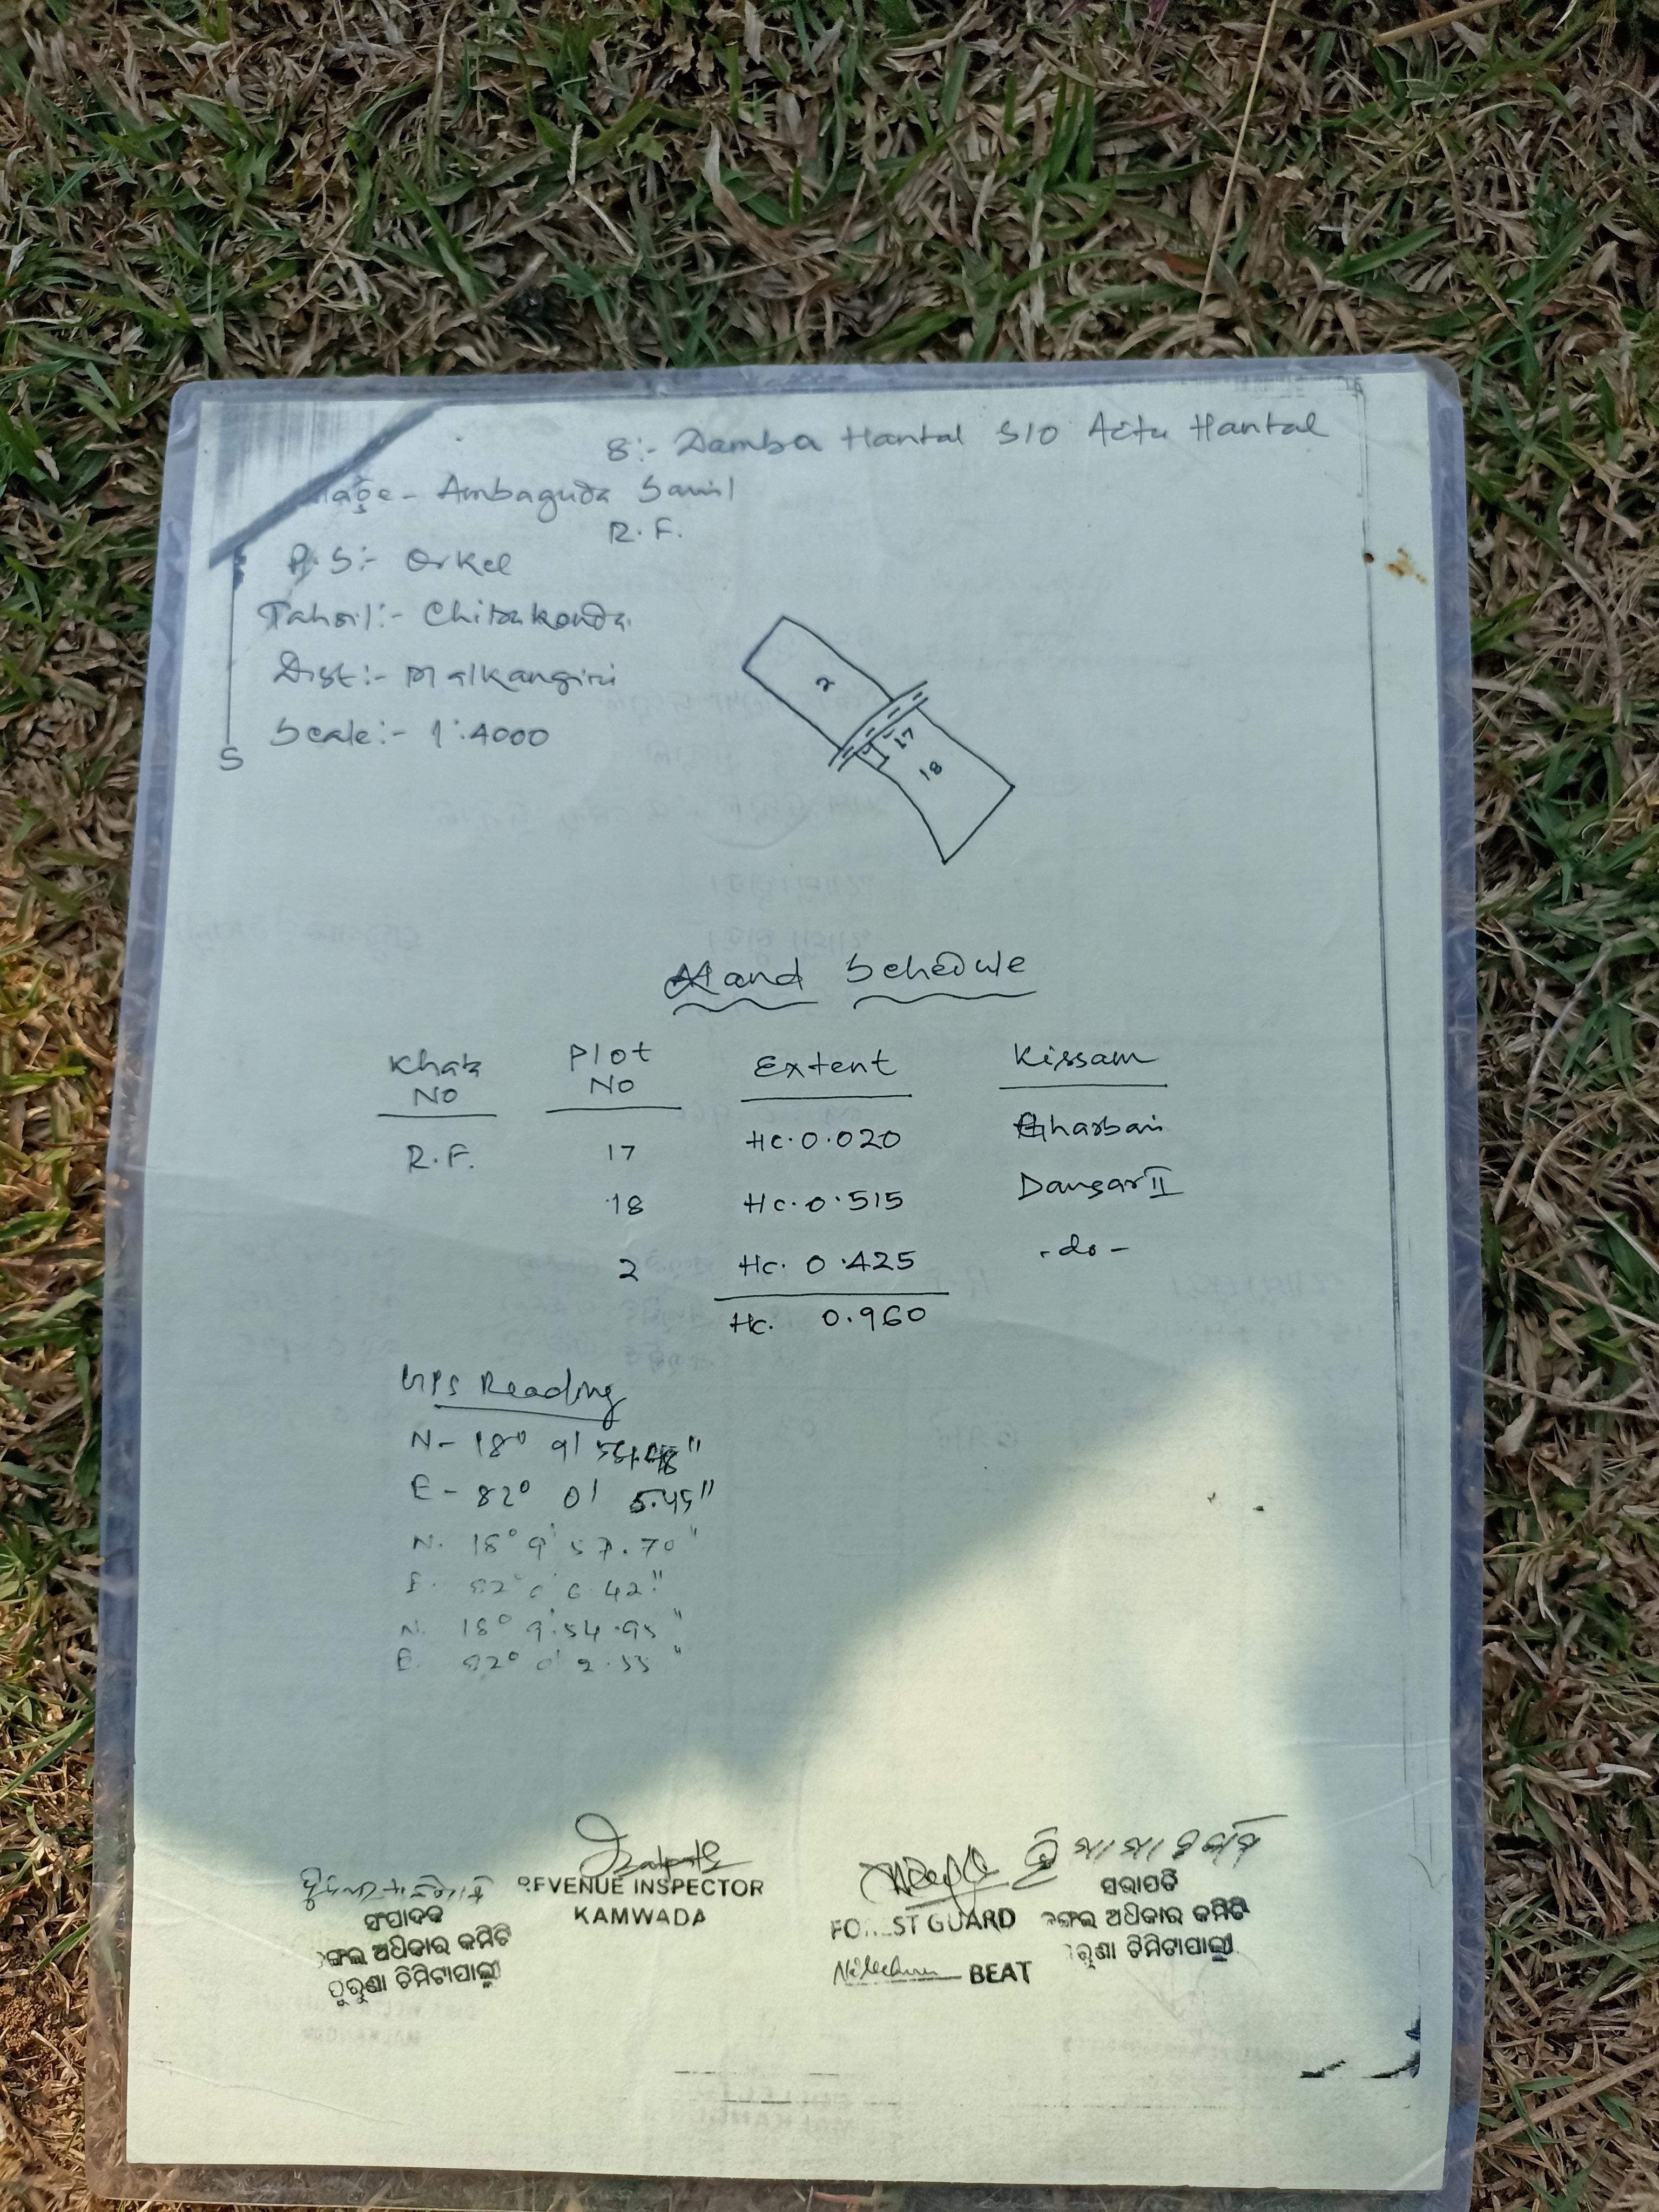 8:- Damba Hantal S/O Aitu Hantal
Ambaguda Samil
R.F.
P.S:- Orkel
Tahsil:- Chitrakonda
Dist:- Malkangiri
Scale:- 1:4000
S
2
17
18
Land Schedule
Khata No Plot No Extent Kissam
R.F. 17 Hc. 0.020 Gharbari
18 Hc. 0.515 Dangar II
2 Hc. 0.425 -do-
Hc. 0.960
GPS Reading
N- 18° 9'
E- 82° 0' 5.45"
N. 18° 9' 57.70"
E. 82° 0' 6.42"
N. 18° 9' 54.95"
E. 82° 0' 2.55"
REVENUE INSPECTOR
KAMWADA
FOREST GUARD
BEAT
ସଂପାଦକ
ଜଙ୍ଗଲ ଅଧିକାର କମିଟି
ପୁରୁଣା ଚିମିଟାପାଲ୍ଲୀ
ସଭାପତି
ଜଙ୍ଗଲ ଅଧିକାର କମିଟି
ପୁରୁଣା ଚିମିଟାପାଲ୍ଲୀ